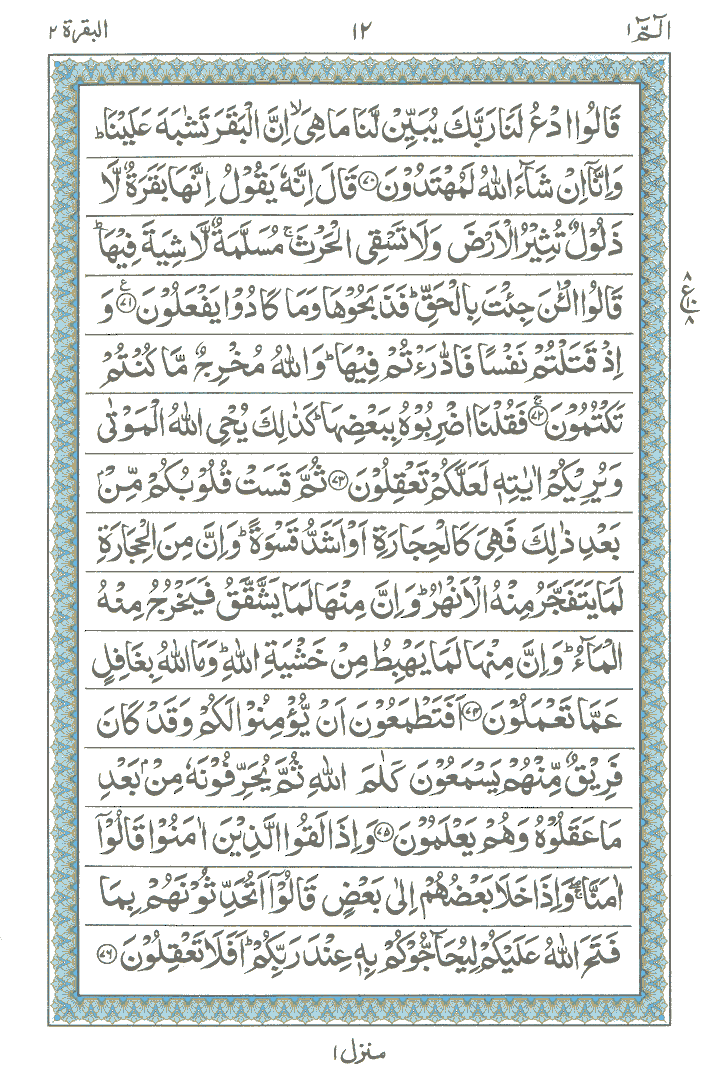 الٓمّٓ ١ ١٢ البقرة ٢
قَالُوا ادْعُ لَنَا رَبَّكَ يُبَيِّنْ لَّنَا مَا هِىَ ۙ اِنَّ الْبَقَرَ تَشٰبَهَ عَلَيْنَا ؕ
وَاِنَّاۤ اِنْ شَآءَ اللّٰهُ لَمُهْتَدُوْنَ ﴿۷۰﴾ قَالَ اِنَّهٗ يَقُوْلُ اِنَّهَا بَقَرَةٌ لَّا
ذَلُوْلٌ تُثِيْرُ الْاَرْضَ وَلَا تَسْقِى الْحَرْثَ ۚ مُسَلَّمَةٌ لَّا شِيَةَ فِيْهَا ؕ
قَالُوا الْـٰٔنَ جِئْتَ بِالْحَقِّ ؕ فَذَبَحُوْهَا وَمَا كَادُوْا يَفْعَلُوْنَ ﴿۷۱﴾ ع وَ
اِذْ قَتَلْتُمْ نَفْسًا فَادّٰرَءْتُمْ فِيْهَا ؕ وَاللّٰهُ مُخْرِجٌ مَّا كُنْتُمْ
تَكْتُمُوْنَ ﴿۷۲﴾ ۚ فَقُلْنَا اضْرِبُوْهُ بِبَعْضِهَا ؕ كَذٰلِكَ يُحْىِ اللّٰهُ الْمَوْتٰى
وَيُرِيْكُمْ اٰيٰتِهٖ لَعَلَّكُمْ تَعْقِلُوْنَ ﴿۷۳﴾ ثُمَّ قَسَتْ قُلُوْبُكُمْ مِّنْۢ
بَعْدِ ذٰلِكَ فَهِىَ كَالْحِجَارَةِ اَوْ اَشَدُّ قَسْوَةً ؕ وَاِنَّ مِنَ الْحِجَارَةِ
لَمَا يَتَفَجَّرُ مِنْهُ الْاَنْهٰرُ ؕ وَاِنَّ مِنْهَا لَمَا يَشَّقَّقُ فَيَخْرُجُ مِنْهُ
الْمَآءُ ؕ وَاِنَّ مِنْهَا لَمَا يَهْبِطُ مِنْ خَشْيَةِ اللّٰهِ ؕ وَمَا اللّٰهُ بِغَافِلٍ
عَمَّا تَعْمَلُوْنَ ﴿۷۴﴾ اَفَتَطْمَعُوْنَ اَنْ يُّؤْمِنُوْا لَكُمْ وَقَدْ كَانَ
فَرِيْقٌ مِّنْهُمْ يَسْمَعُوْنَ كَلٰمَ اللّٰهِ ثُمَّ يُحَرِّفُوْنَهٗ مِنْۢ بَعْدِ
مَا عَقَلُوْهُ وَهُمْ يَعْلَمُوْنَ ﴿۷۵﴾ وَاِذَا لَقُوا الَّذِيْنَ اٰمَنُوْا قَالُوْۤا
اٰمَنَّا ۚۖ وَاِذَا خَلَا بَعْضُهُمْ اِلٰى بَعْضٍ قَالُوْۤا اَتُحَدِّثُوْنَهُمْ بِمَا
فَتَحَ اللّٰهُ عَلَيْكُمْ لِيُحَآجُّوْكُمْ بِهٖ عِنْدَ رَبِّكُمْ ؕ اَفَلَا تَعْقِلُوْنَ ﴿۷۶﴾
٨
ع ١٠
٨
منزل ١